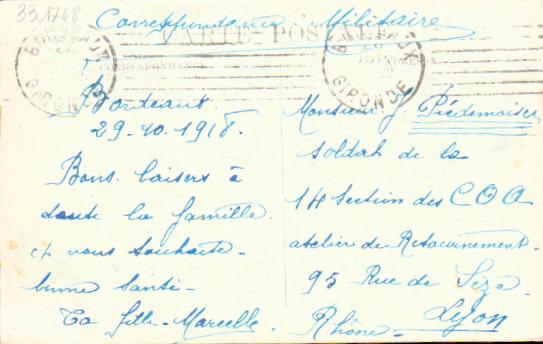 331748
Correspondance Militaire
CARTE POSTALE
BORDEAUX
GIRONDE
Bordeaux.
29-10.1918.
Bons baisers à
toute la famille
et vous souhaite
bonne santé-
Ta fille-Marcelle.
GIRONDE
Monsieur J.
soldat de la
14 Section des COA
atelier de Retournement.
95 Rue de Sèze.
Lyon
Rhône-